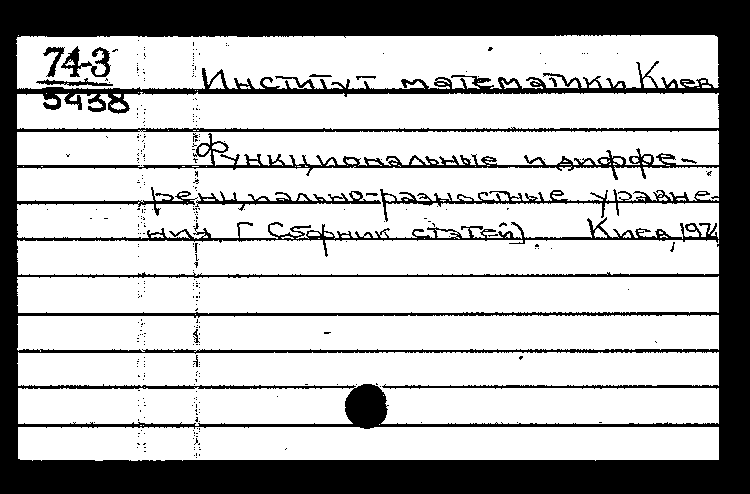 74-3
5438
Институт математики Киев
Функциональные и диффе-
ренциально-разностные уравне-
ния [Сборник статей]. Киев, 1974